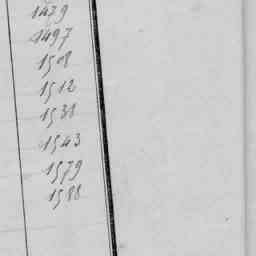 1479
1497
1508
1512
1538
1543
1579
1588